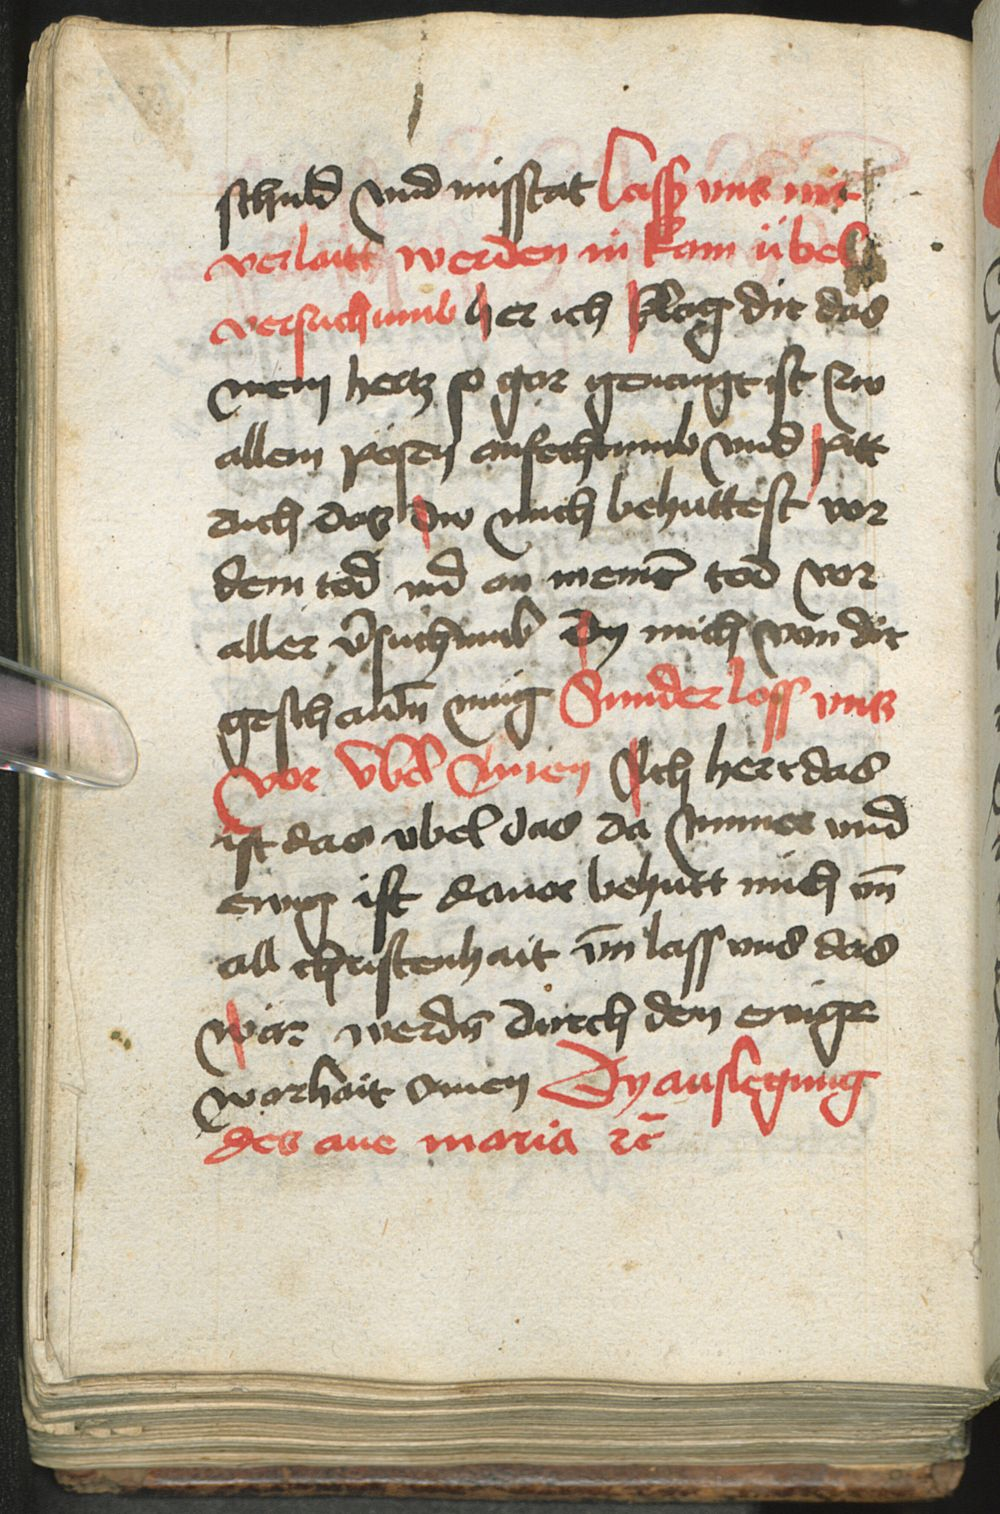 schuld vnd misstat lass vns nit
verlaitt werden in kain übel
versuchumb her ich klag dir das
mein hertz so gar genaigt ist zw
allem posen anfechtumb vnd pitt
dich das dw mich behuttest vor
dem tod vnd an meinē tod vor
aller v̄suchumb dy mich von dir
geschaidn̄ mug Sunder loss vns
vor vbel Amen Ach herr das
ist das vbel das da ymmer vnd
ewig ist dauor behutt mich vn̄
all christenhait vn̄ lass vns das
war werdn̄ durch den ewige
warhait Amen Dy auslegung
des aue maria ꝛc̄